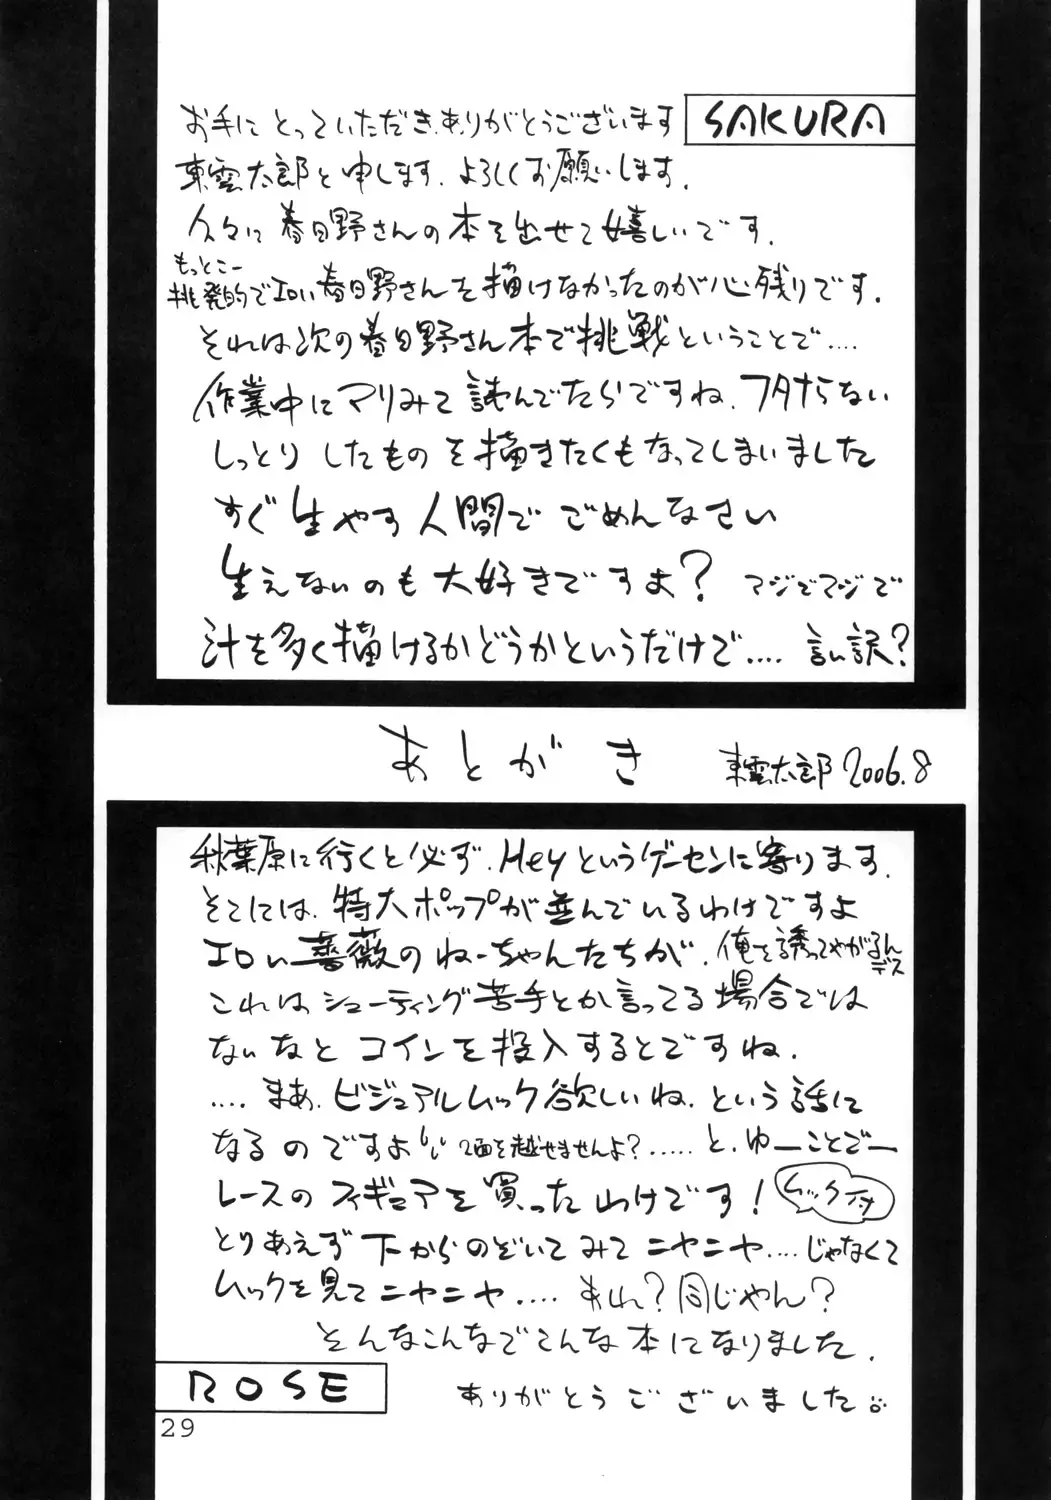 SAKURA
お手にとっていただきありがとうございます
東雲太郎と申します。よろしくお願いします。
久々に春日野さんの本を出せて嬉しいです。
もっとこー
挑発的でエロい春日野さんを描けなかったのが心残りです。
それは次の春日野さん本で挑戦ということで....
作業中にマリみて読んでたらですね、フタナらない
しっとりしたものを描きたくもなってしまいました
すぐ生やす人間でごめんなさい
生えないのも大好きですよ？マジでマジで
汁を多く描けるかどうかというだけで....言い訳？
あとがき 東雲太郎 2006.8
秋葉原に行くと必ず、Heyというゲーセンに寄ります。
そこには、特大ポップが並んでいるわけですよ
エロい薔薇のねーちゃんたちが、俺を誘ってやがるんデス
これはシューティング苦手とか言ってる場合では
ないなとコインを投入するとですね、
....まあ、ビジュアルムック欲しいね、という話に
なるのですよ 2面を越せませんよ？.....と、ゆーことでー
レースのフィギュアを買ったわけです！ ムック付
とりあえず下からのぞいてみてニヤニヤ....じゃなくて
ムックを見てニヤニヤ....あれ？同じやん？
そんなこんなでこんな本になりました。
ありがとうございました
ROSE
29